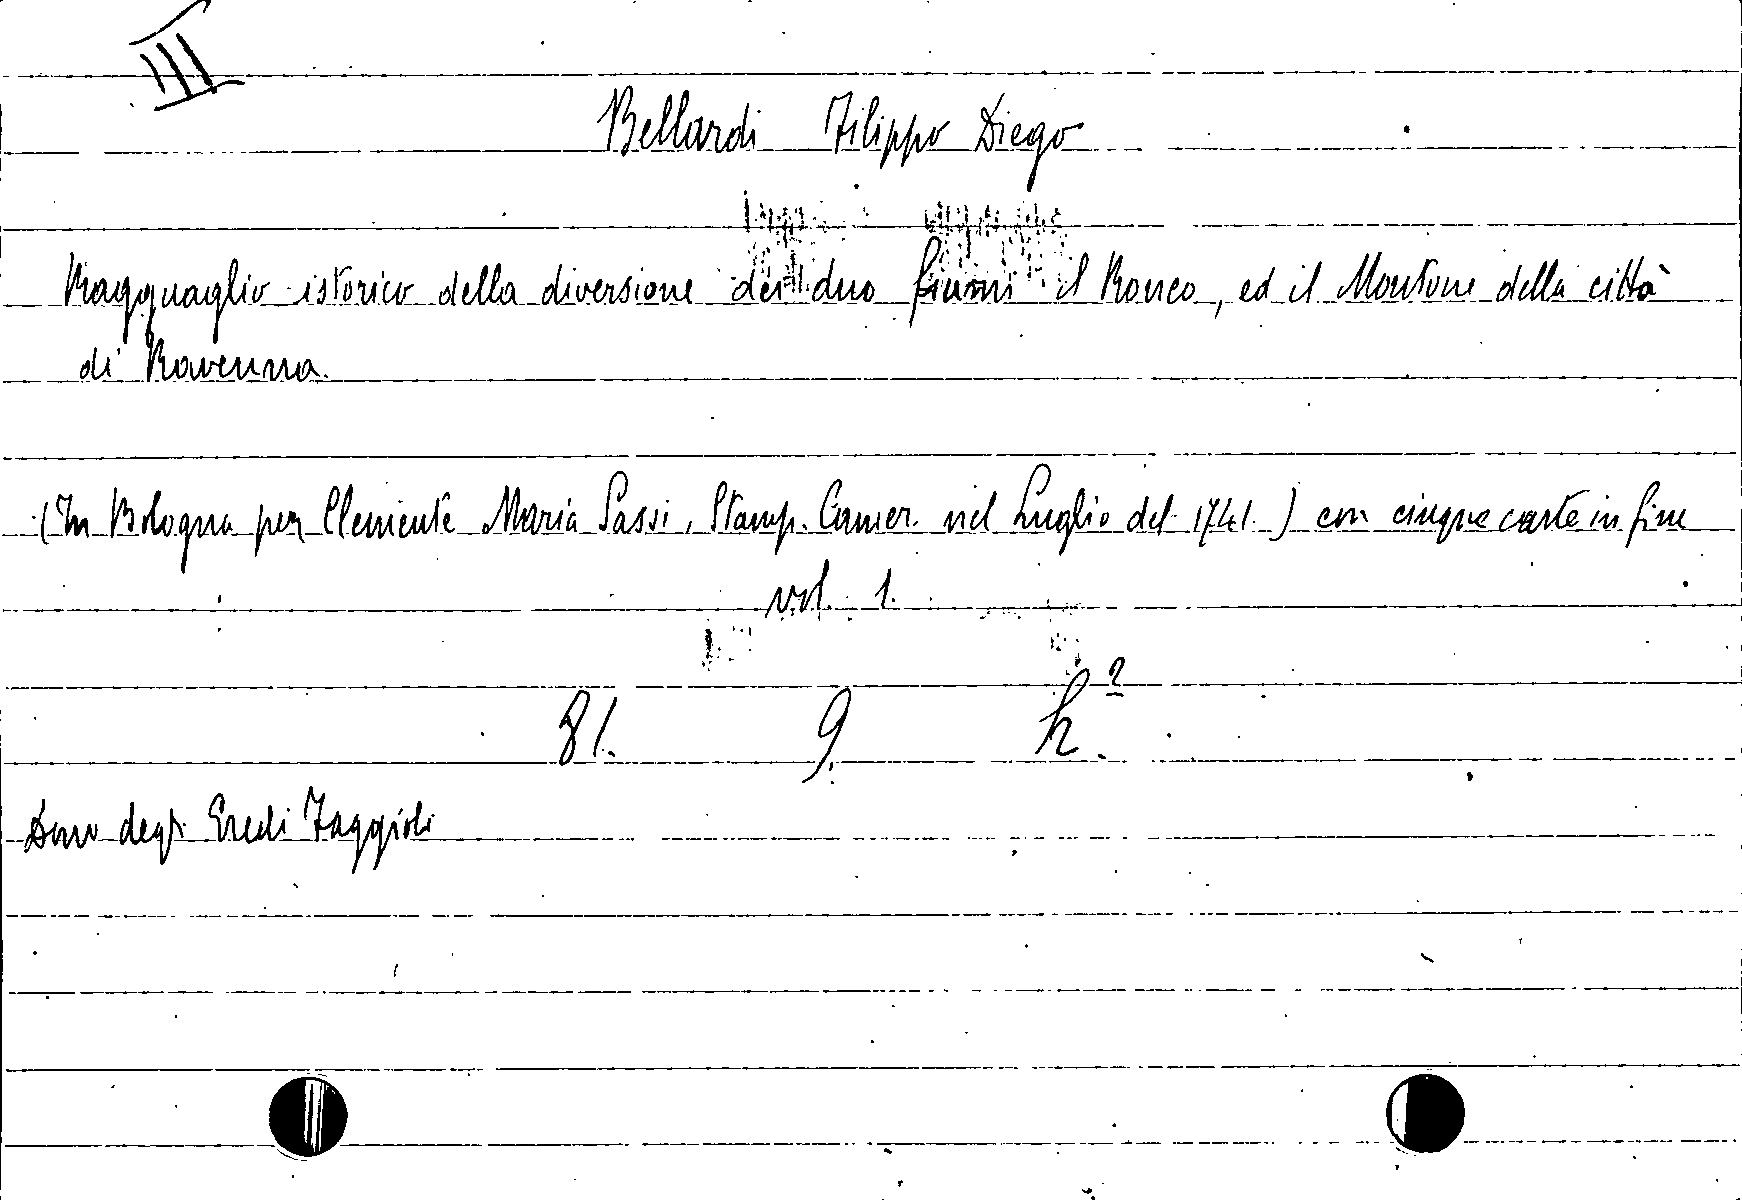 III
Bellardi Filippo Diego
Ragguaglio istorico della diversione dei due fiumi il Ronco, ed il Montone della città
di Ravenna.
(In Bologna per Clemente Maria Sassi, Stamp. Camer. nel Luglio del 1741.) con cinque carte in fine
vol. 1.
81. 9. h².
Dono degli Eredi Faggioli